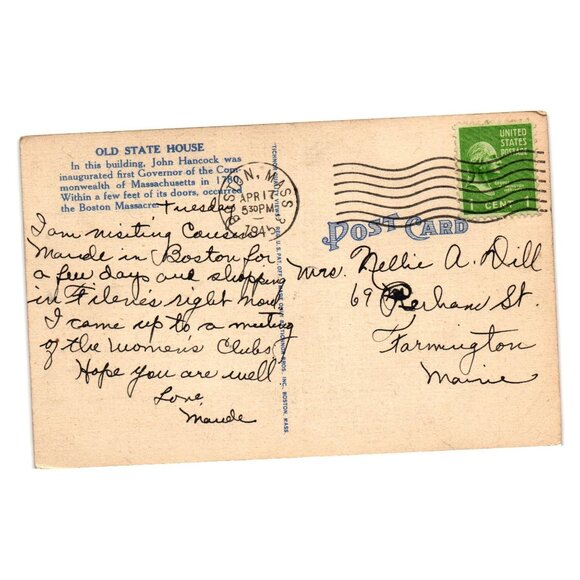 OLD STATE HOUSE
In this building, John Hancock was
inaugurated first Governor of the Com-
monwealth of Massachusetts in 1780.
Within a few feet of its doors, occurred
the Boston Massacre.
Tuesday
I am visiting Cousin
Maude in Boston for
a few days and shopping
in Filene's right now
I came up to a meeting
of the Women's Clubs
Hope you are well
Love,
Maude
BOSTON, MASS.
APR 17
5 30 PM
1945
UNITED
STATES
POSTAGE
1 CENT 1
POST CARD
Mrs. Nellie A. Dill
69 Perham St.
Farmington
Maine
BOSTON, MASS.